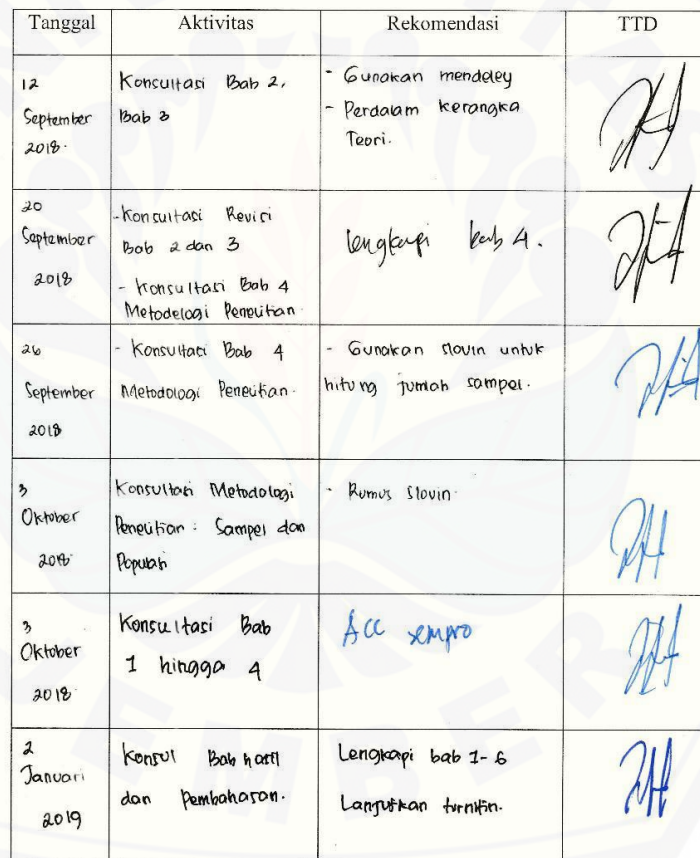 Tanggal Aktivitas Rekomendasi TTD
12
September
2018.
Konsultasi Bab 2,
Bab 3
- Gunakan mendeley
- Perdalam kerangka
Teori.
20
September
2018
- Konsultasi Revisi
Bab 2 dan 3
- Konsultasi Bab 4
Metodelogi Penelitian.
lengkapi bab 4.
26
September
2018
- Konsultasi Bab 4
Metodologi Penelitian.
- Gunakan slovin untuk
hitung jumlah sampel.
3
Oktober
2018
Konsultasi Metodologi
Penelitian : Sampel dan
Populasi
- Rumus Slovin.
3
Oktober
2018
Konsultasi Bab
1 hingga 4
ACC sempro
2
Januari
2019
Konsul Bab hasil
dan Pembahasan.
Lengkapi bab 1-6
Lanjutkan turnitin.